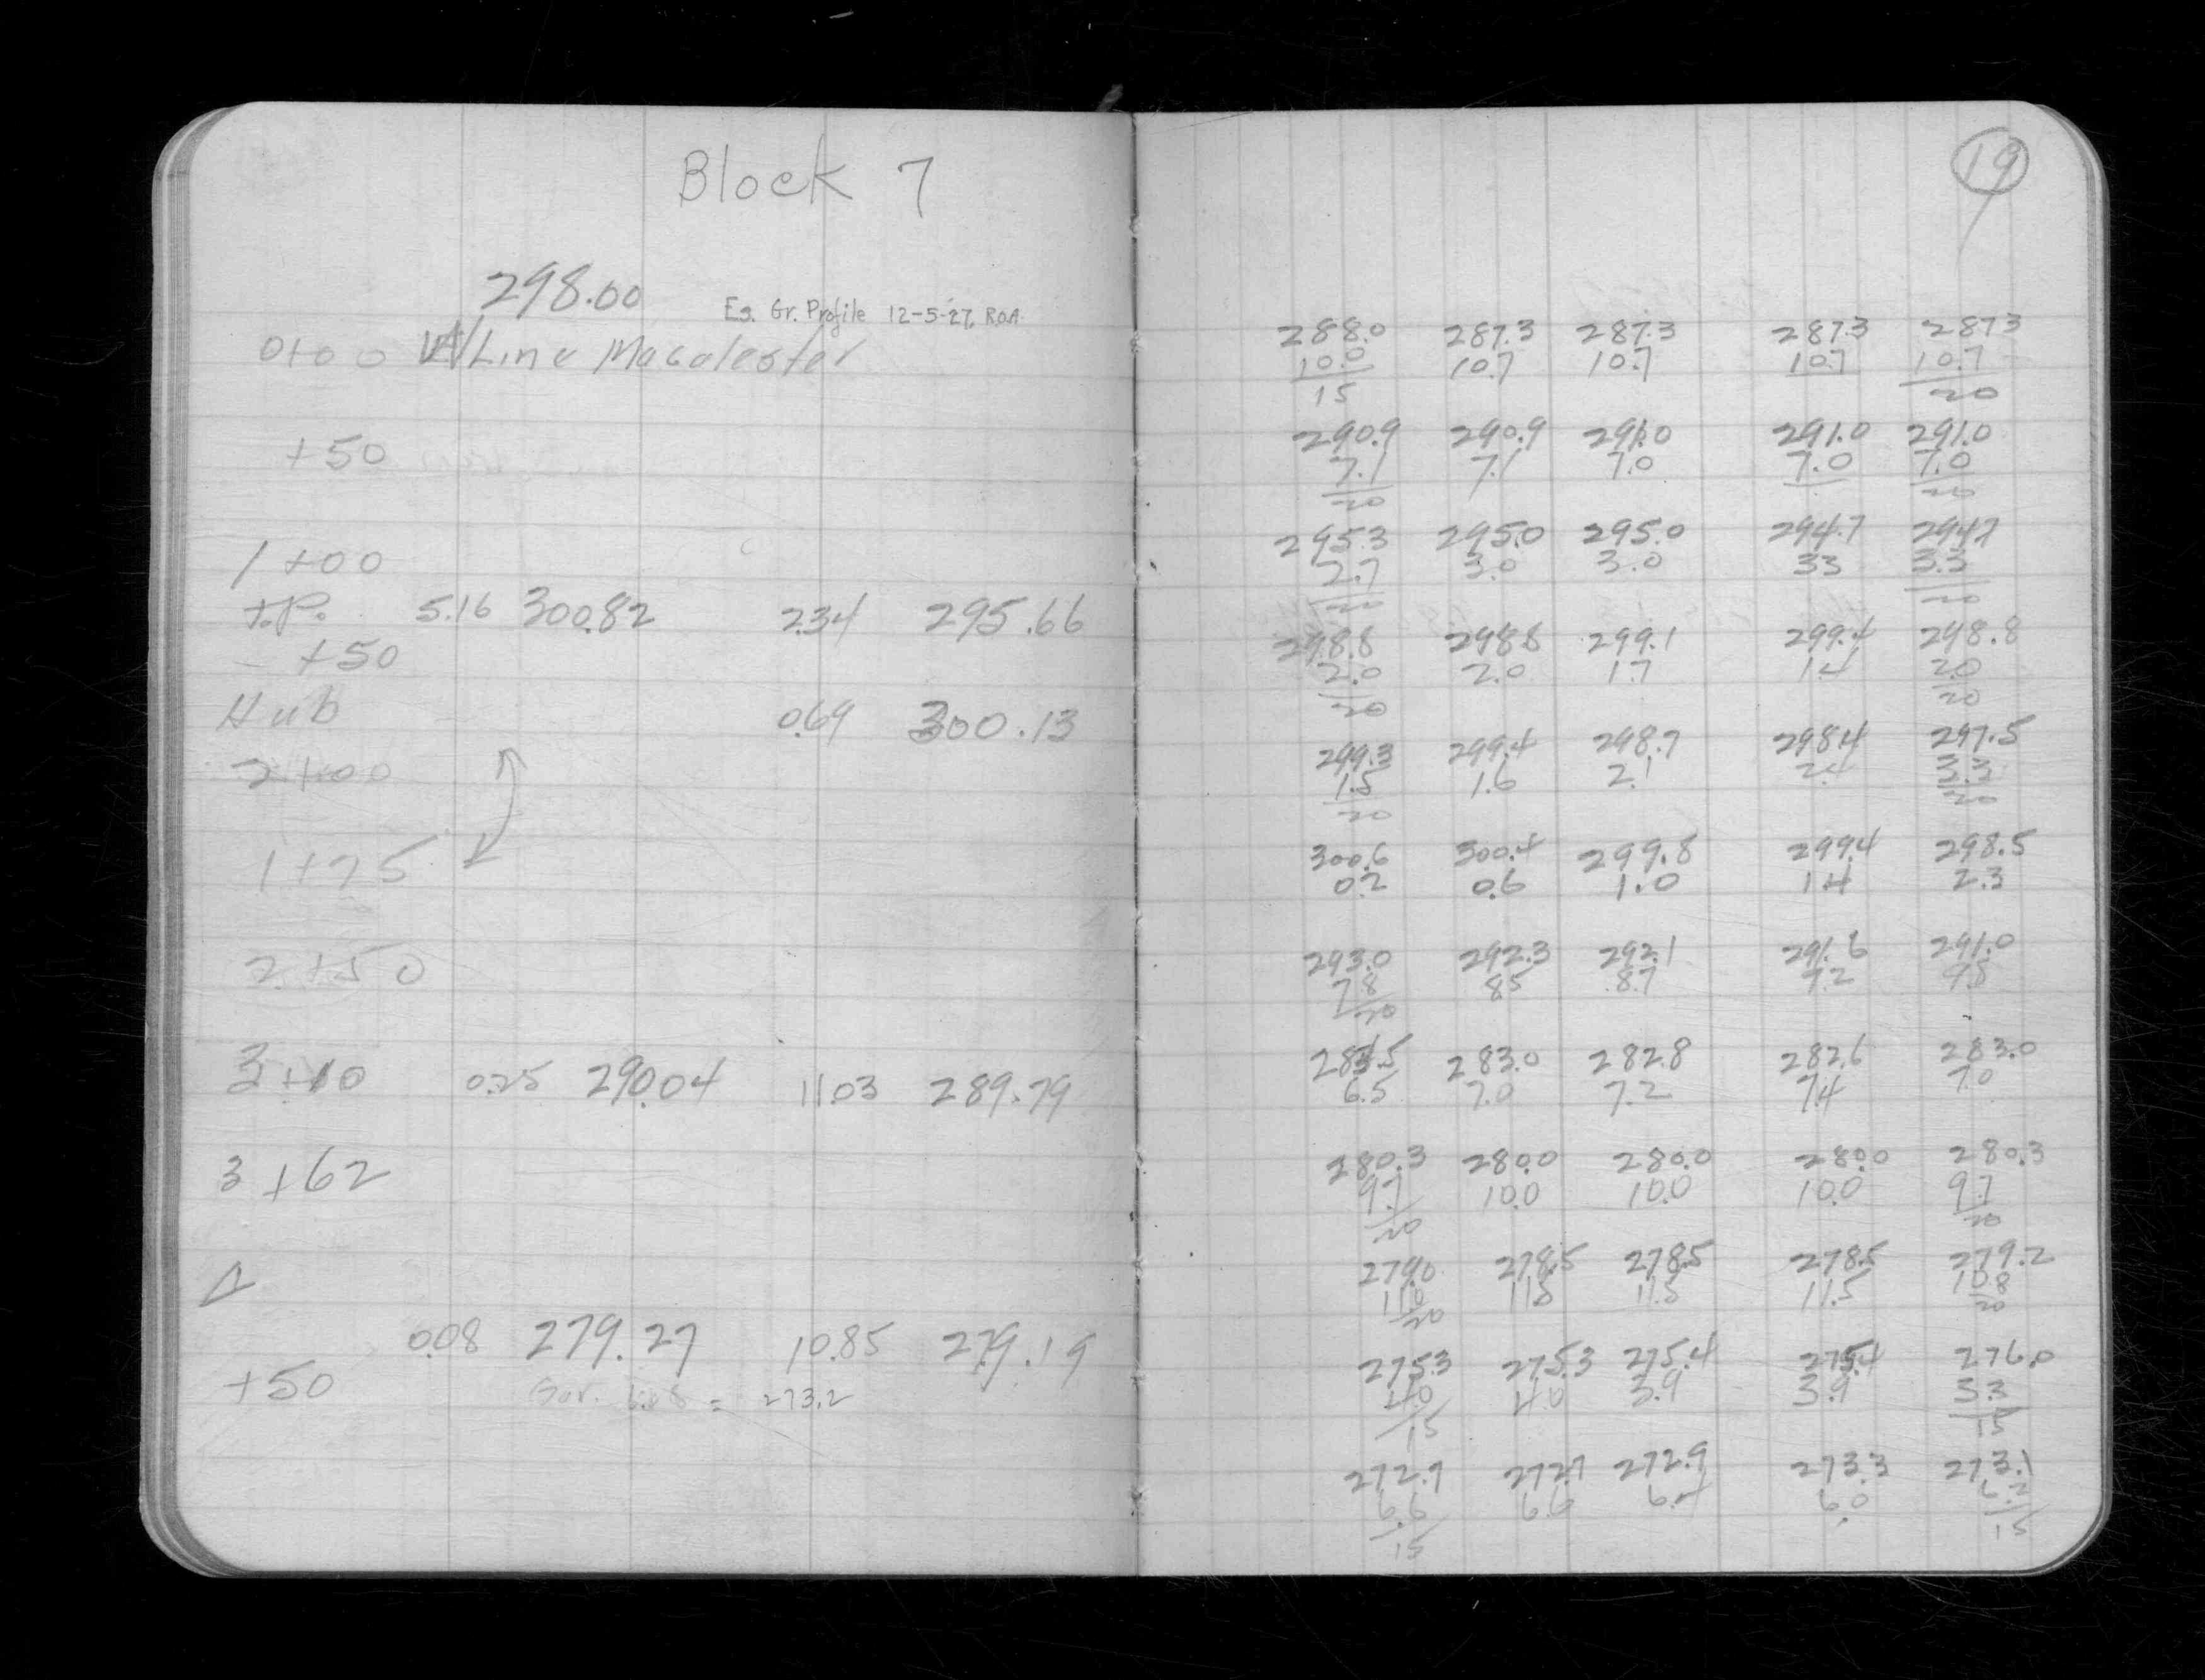 Block 7
298.00
Es. Gr. Profile 12-5-27, R.O.A.
0+00 W/Line Macalester
+50
1+00
T.P. 5.16 300.82 2.34 295.66
+50
Hub 0.69 300.13
2+00
1+75
2+50
3+10 0.25 290.04 11.03 289.79
3+62
Δ
0.08 279.27 10.85 279.19
+50
= 273.2
19
288.0 287.3 287.3 287.3 287.3
10.0 10.7 10.7 10.7 10.7
15 20
290.9 290.9 291.0 291.0 291.0
7.1 7.1 7.0 7.0 7.0
20 20
295.3 295.0 295.0 294.7 294.7
2.7 3.0 3.0 3.3 3.3
20 20
298.8 298.8 299.1 299.4 298.8
2.0 2.0 1.7 1.4 2.0
20 20
299.3 299.4 298.7 298.4 297.5
1.5 1.6 2.1 2.4 3.3
20 20
300.6 300.4 299.8 299.4 298.5
0.2 0.6 1.0 1.4 2.3
293.0 292.3 292.1 291.6 291.0
7.8 8.5 8.7 9.2 9.8
20
283.5 283.0 282.8 282.6 283.0
6.5 7.0 7.2 7.4 7.0
280.3 280.0 280.0 280.0 280.3
9.7 10.0 10.0 10.0 9.7
20 20
279.0 278.5 278.5 278.5 279.2
11.0 11.5 11.5 11.5 10.8
20 20
275.3 275.3 275.4 275.4 276.0
4.0 4.0 3.9 3.9 3.3
15 15
272.7 272.7 272.9 273.3 273.1
6.6 6.6 6.4 6.0 6.2
15 15